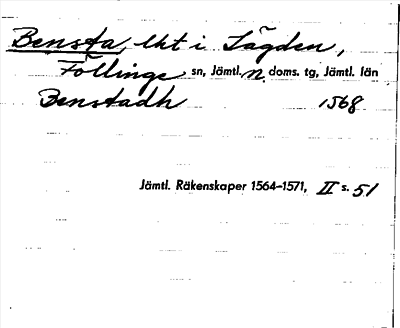 Bensta, lht i Lägden,
Föllinge sn, Jämtl. N. doms. tg, Jämtl. län
Benstadh 1568
Jämtl. Räkenskaper 1564-1571, II s. 51